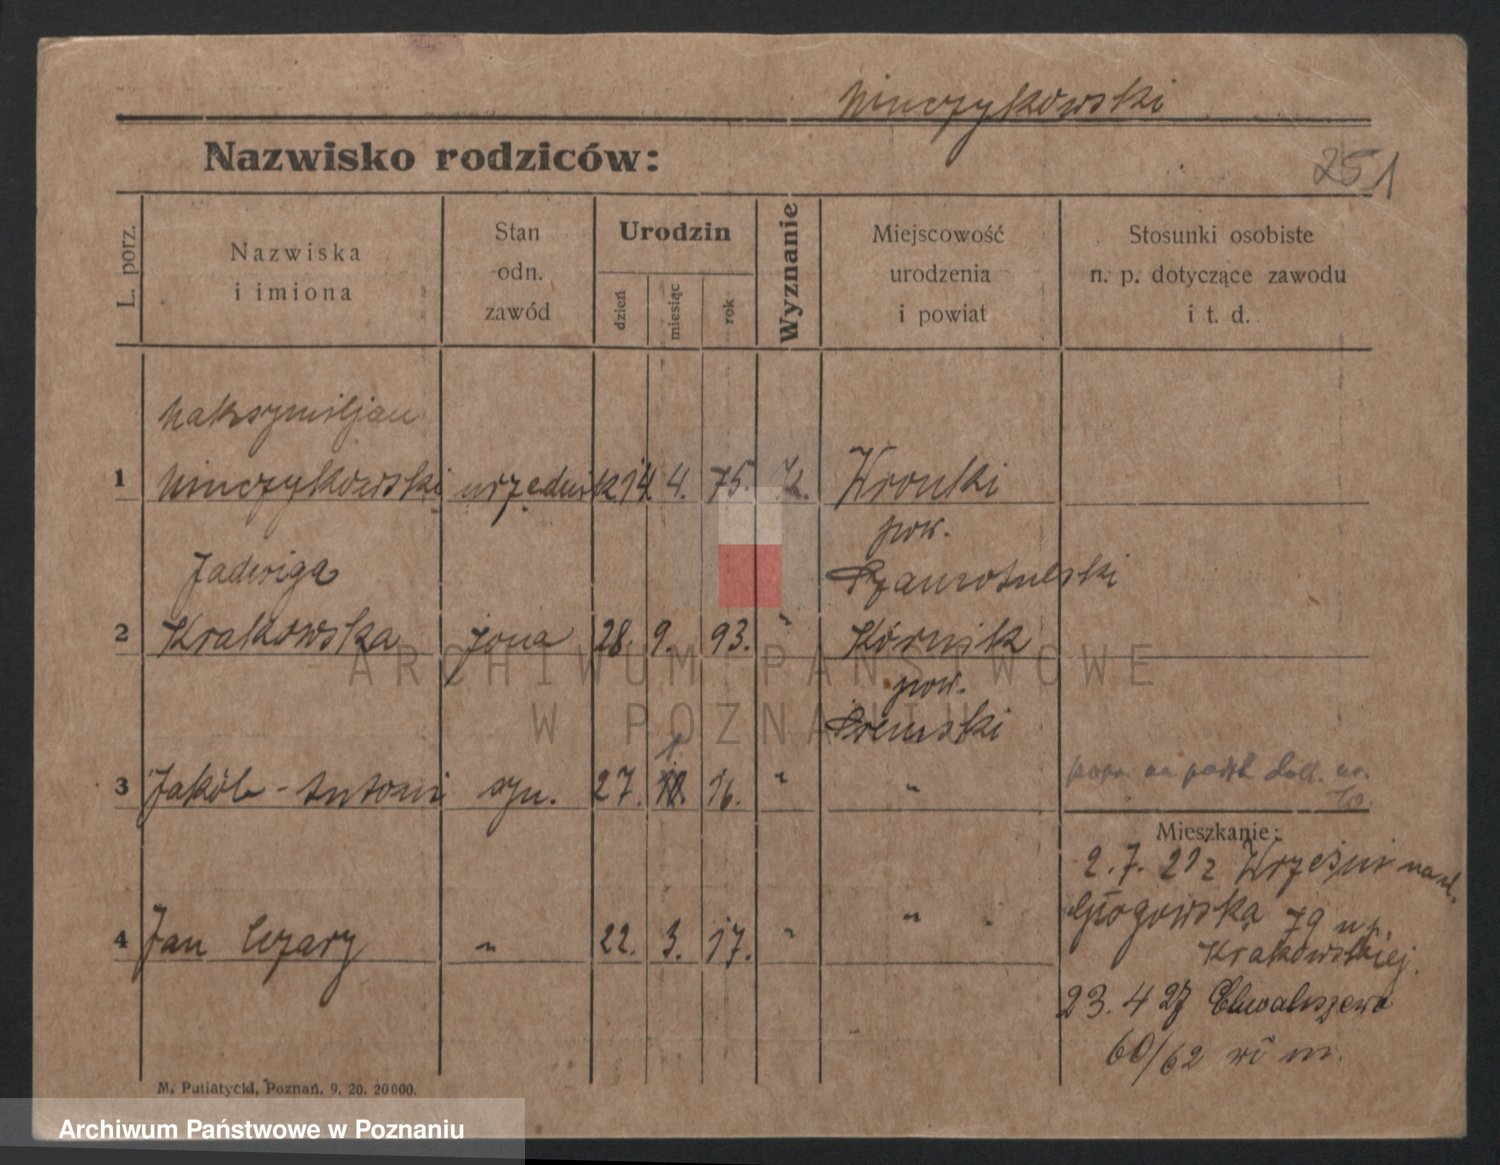 Ninczykowski
Nazwisko rodziców:
251
L. porz.
Nazwiska
i imiona
Stan
odn.
zawód
Urodzin
dzień
miesiąc
rok
Wyznanie
Miejscowość
urodzenia
i powiat
Stosunki osobiste
n. p. dotyczące zawodu
i t. d.
Maksymiljan
1 Ninczykowski urzędnik 14. 4. 75. K. Wronki
pow.
Szamotulski
Jadwiga
2 Krakowska żona 28. 9. 93. " Kórnik
pow.
Śremski
3 Jakób - Antoni syn. 27. 16. " "
Mieszkanie:
2. 7. 21 z Wrześni na ul.
Głogowska 79 u p.
Krakowskiej.
4 Jan Cezary " 22. 3. 17. " " "
23. 4 27 Chwaliszewo
60/62 w m.
M. Putiatycki, Poznań. 9. 20. 20000.
ARCHIWUM PAŃSTWOWE
W POZNANIU
Archiwum Państwowe w Poznaniu